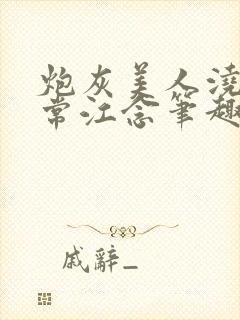 炮灰美人浇
常江念笔趣
戚辭_